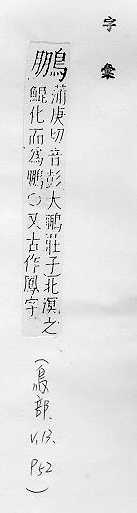 字彙
鵬
蒲庚切音彭大鵬莊子北溟之
鯤化而為鵬○又古作鳳字
(鳥部,
V.13,
P52)